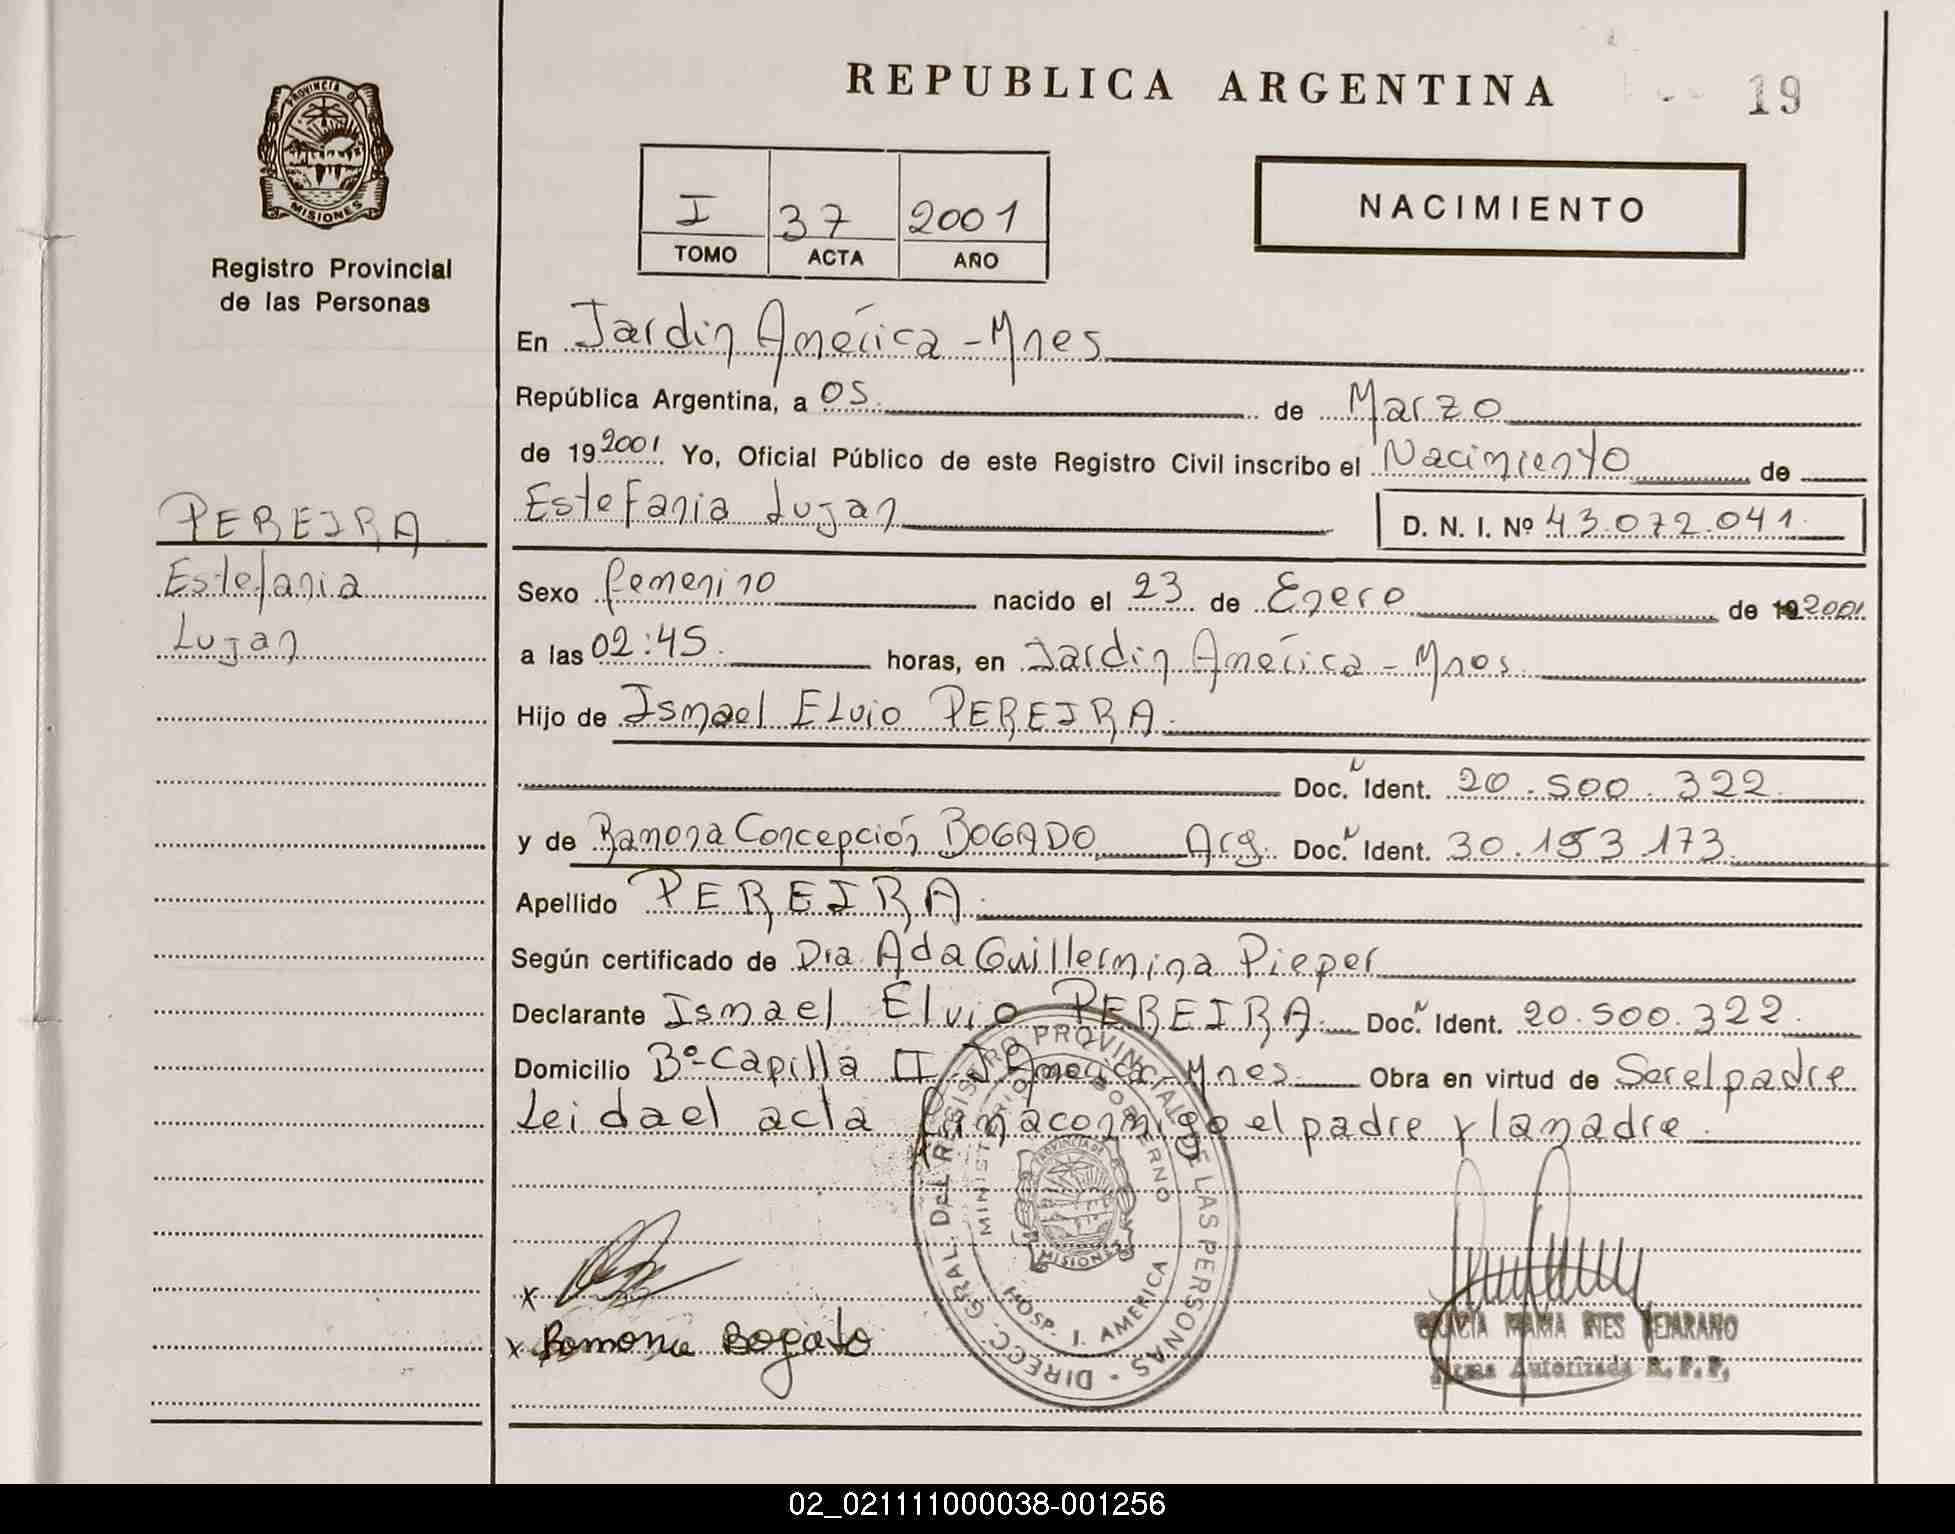 REPUBLICA ARGENTINA
19
PROVINCIA DE
MISIONES
Registro Provincial
de las Personas
I 37 2001
TOMO ACTA AÑO
NACIMIENTO
En Jardin América - Mnes
República Argentina, a 05 de Marzo
de 19 2001 Yo, Oficial Público de este Registro Civil inscribo el Nacimiento de
Estefania Lujan D. N. I. Nº 43.072.041.
PEREIRA
Estefania
Lujan
Sexo femenino nacido el 23 de Enero de 19 2001
a las 02:45 horas, en Jardin América - Mnes.
Hijo de Ismael Elvio PEREIRA.
Doc. N Ident. 20.500.322
y de Ramona Concepción BOGADO Arg. Doc. N Ident. 30.153.173
Apellido PEREIRA.
Según certificado de Dra. Ada Guillermina Pieper
Declarante Ismael Elvio PEREIRA. Doc. N Ident. 20.500.322
Domicilio Bº Capilla II J. America - Mnes Obra en virtud de Ser el padre
Leida el acta firma conmigo el padre y la madre.
DIRECC. GRAL. DEL REGISTRO PROVINCIAL DE LAS PERSONAS
MINISTERIO DE GOBIERNO
PROVINCIA DE
MISIONES
HOSP. J. AMERICA
x
x Ramona Bogado
MARIA INES
Firma Autorizada R. P. P.
02_021111000038-001256